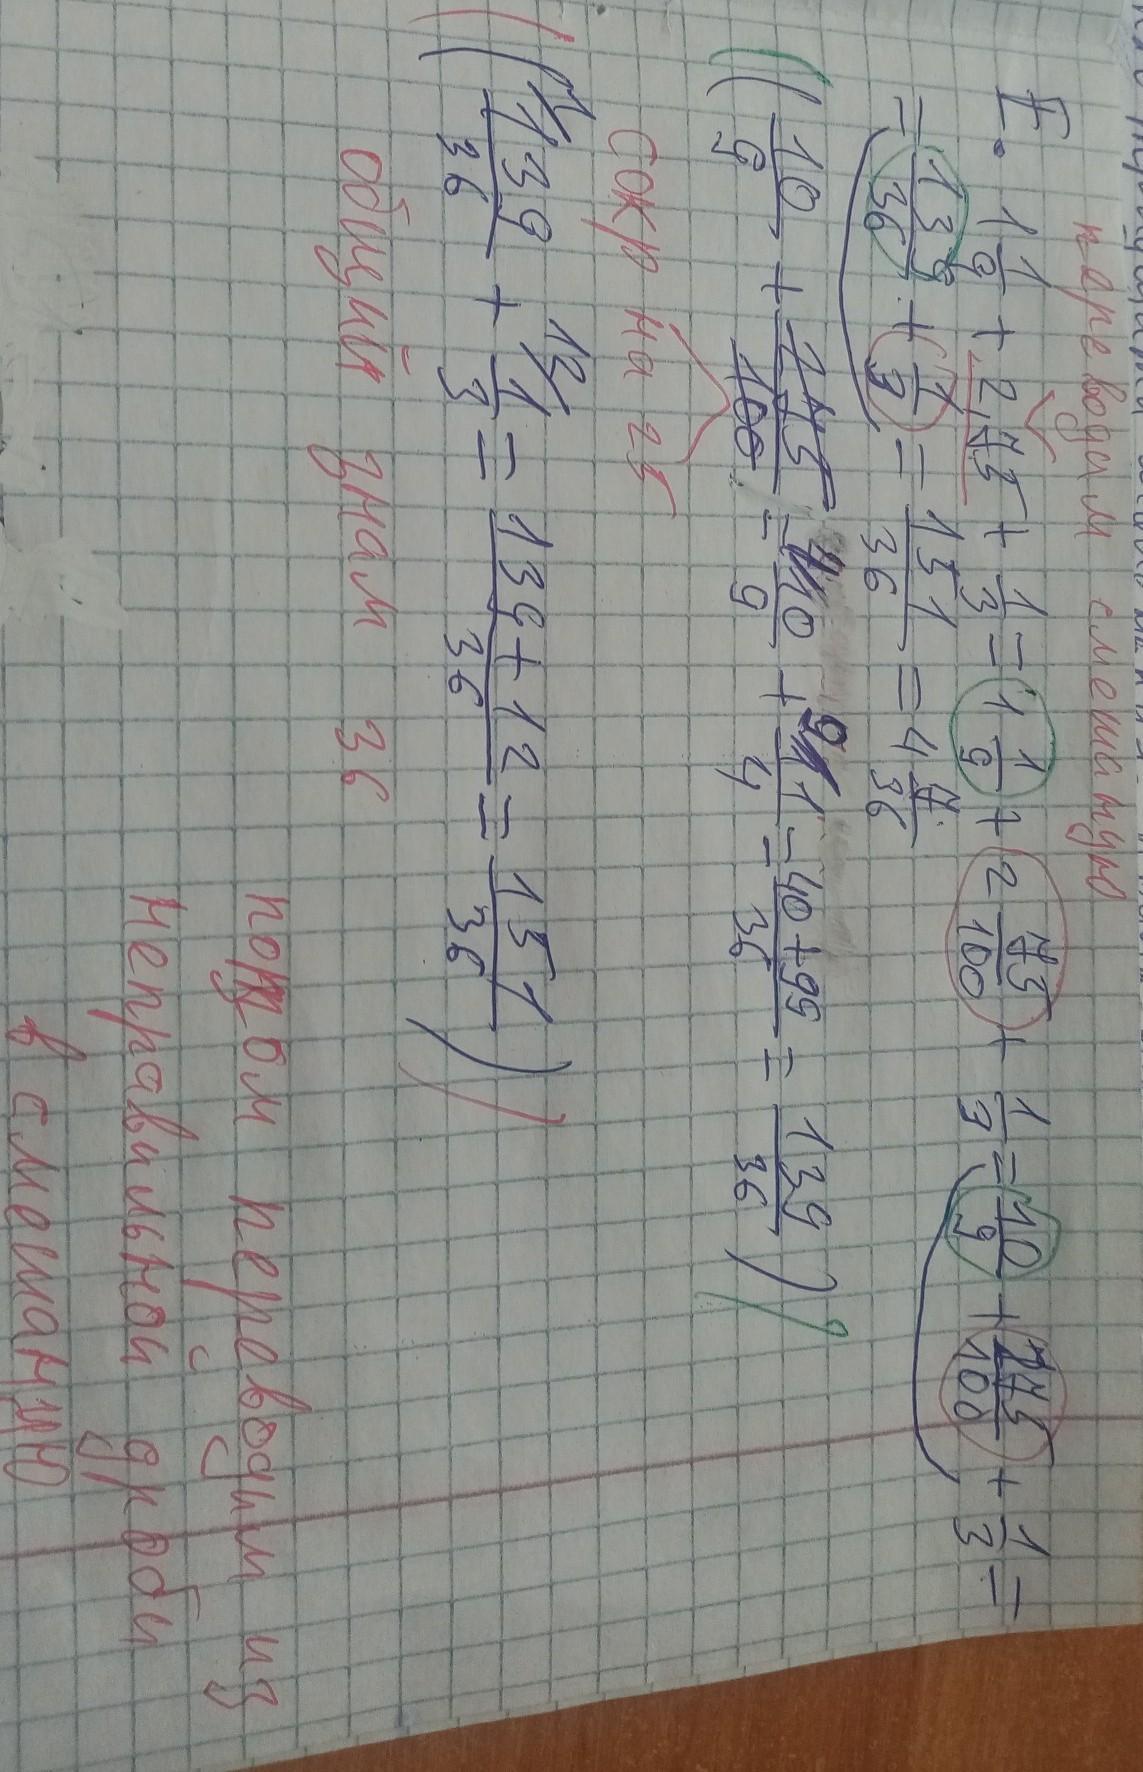 переводим смешаную
1. 1 1/9 + 2,75 + 1/3 = 1 1/9 + 2 75/100 + 1/3 = 10/9 + 275/100 + 1/3 =
= 139/36 + 1/3 = 151/36 = 4 7/36
(10/9 + 275/100 = 4/10/9 + 9/11/4 = 40+99/36 = 139/36)
Сокр на 25
(1/139/36 + 12/1/3 = 139+12/36 = 151/36)
общий знам 36
потом переводим из
неправильной дроби
в смешаную